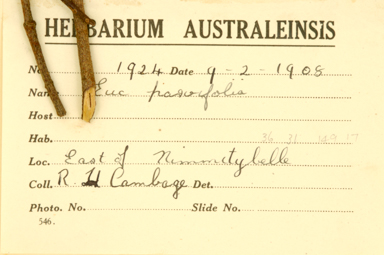 HERBARIUM AUSTRALEINSIS
No. 1924 Date 9-2-1908
Name Euc
Host
Hab.
Loc. East of Nimmitybelle
Coll. R H Cambage Det.
Photo. No. Slide No.
546.